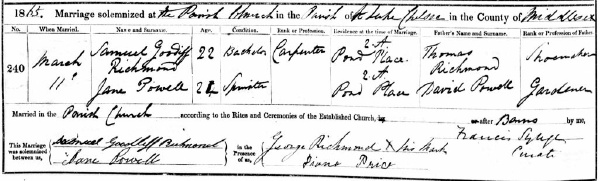 1865. Marriage solemnized at the Parish Church in the Parish of St Luke Chelsea in the County of Middlesex
No. When Married. Name and Surname. Age. Condition. Rank or Profession. Residence at the time of Marriage. Father's Name and Surname. Rank or Profession of Father.
240 March 11th Samuel Goodliff Richmond 22 Bachelor Carpenter 2 A Pond Place. Thomas Richmond Shoemaker
Jane Powell 21 Spinster 2 A Pond Place David Powell Gardener
Married in the Parish Church according to the Rites and Ceremonies of the Established Church, by or after Banns by me,
This Marriage was solemnized between us, Samuel Goodliff Richmond Jane Powell in the Presence of us, George Richmond X his Mark Price Francis Curate